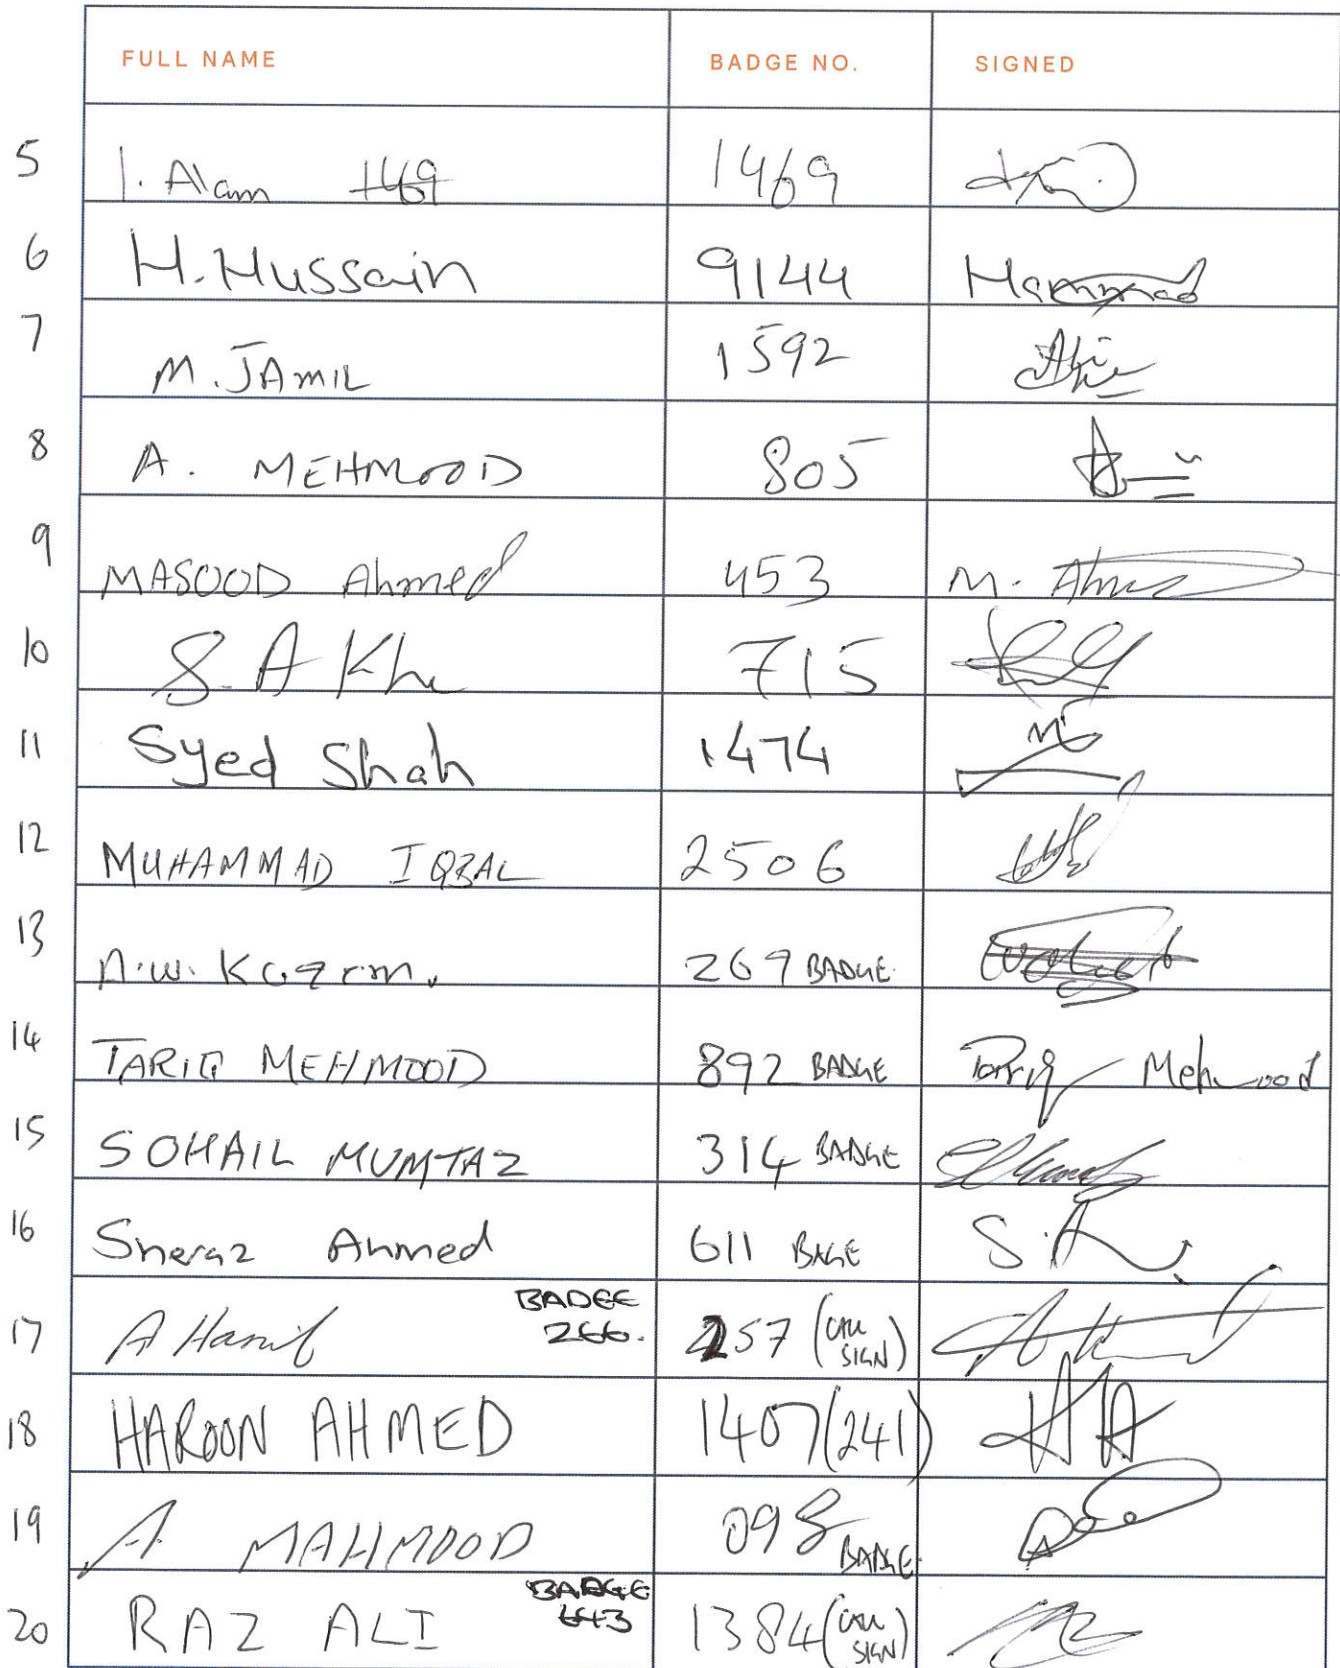 FULL NAME BADGE NO. SIGNED
5 I. Alam 1469 1469
6 H. Hussain 9144 Hammad
7 M. JAMIL 1592
8 A. MEHMOOD 805
9 MASOOD Ahmed 453 M. Ahmed
10 S. A Kh 715
11 Syed Shah 1474
12 MUHAMMAD IQBAL 2506
13 N.W. 269 BADGE
14 TARIQ MEHMOOD 892 BADGE Tariq Mehmood
15 SOHAIL MUMTAZ 314 BADGE
16 Sheraz Ahmed 611 BAGE S.A
17 A Hanif BADGE 266. 257 (CALL SIGN)
18 HAROON AHMED 1407 (241) HA
19 A MAHMOOD 098 BADGE
20 RAZ ALI BADGE 643 1384 (CALL SIGN)